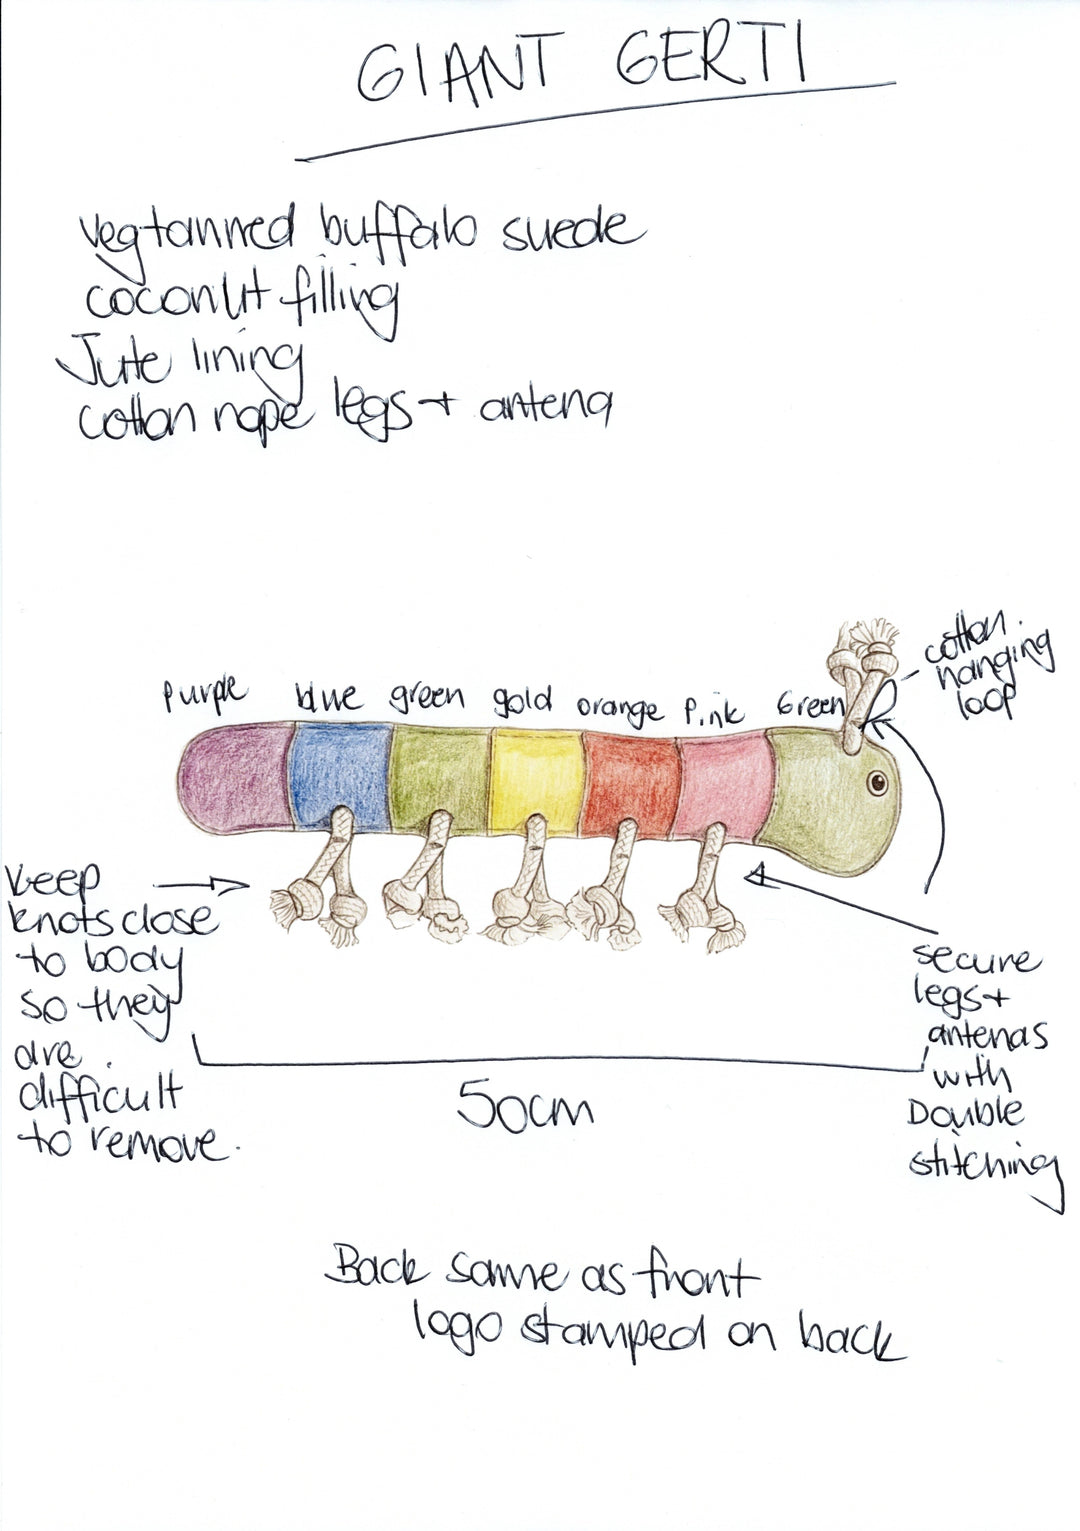 GIANT GERTI
Vegtanned buffalo suede
coconut filling
Jute lining
cotton rope legs + antena
cotton
hanging
loop
Purple blue green gold orange Pink Green
keep
knots close
to body
so they
are
difficult
to remove.
secure
legs +
antenas
with
Double
stitching
50cm
Back same as front
logo stamped on back